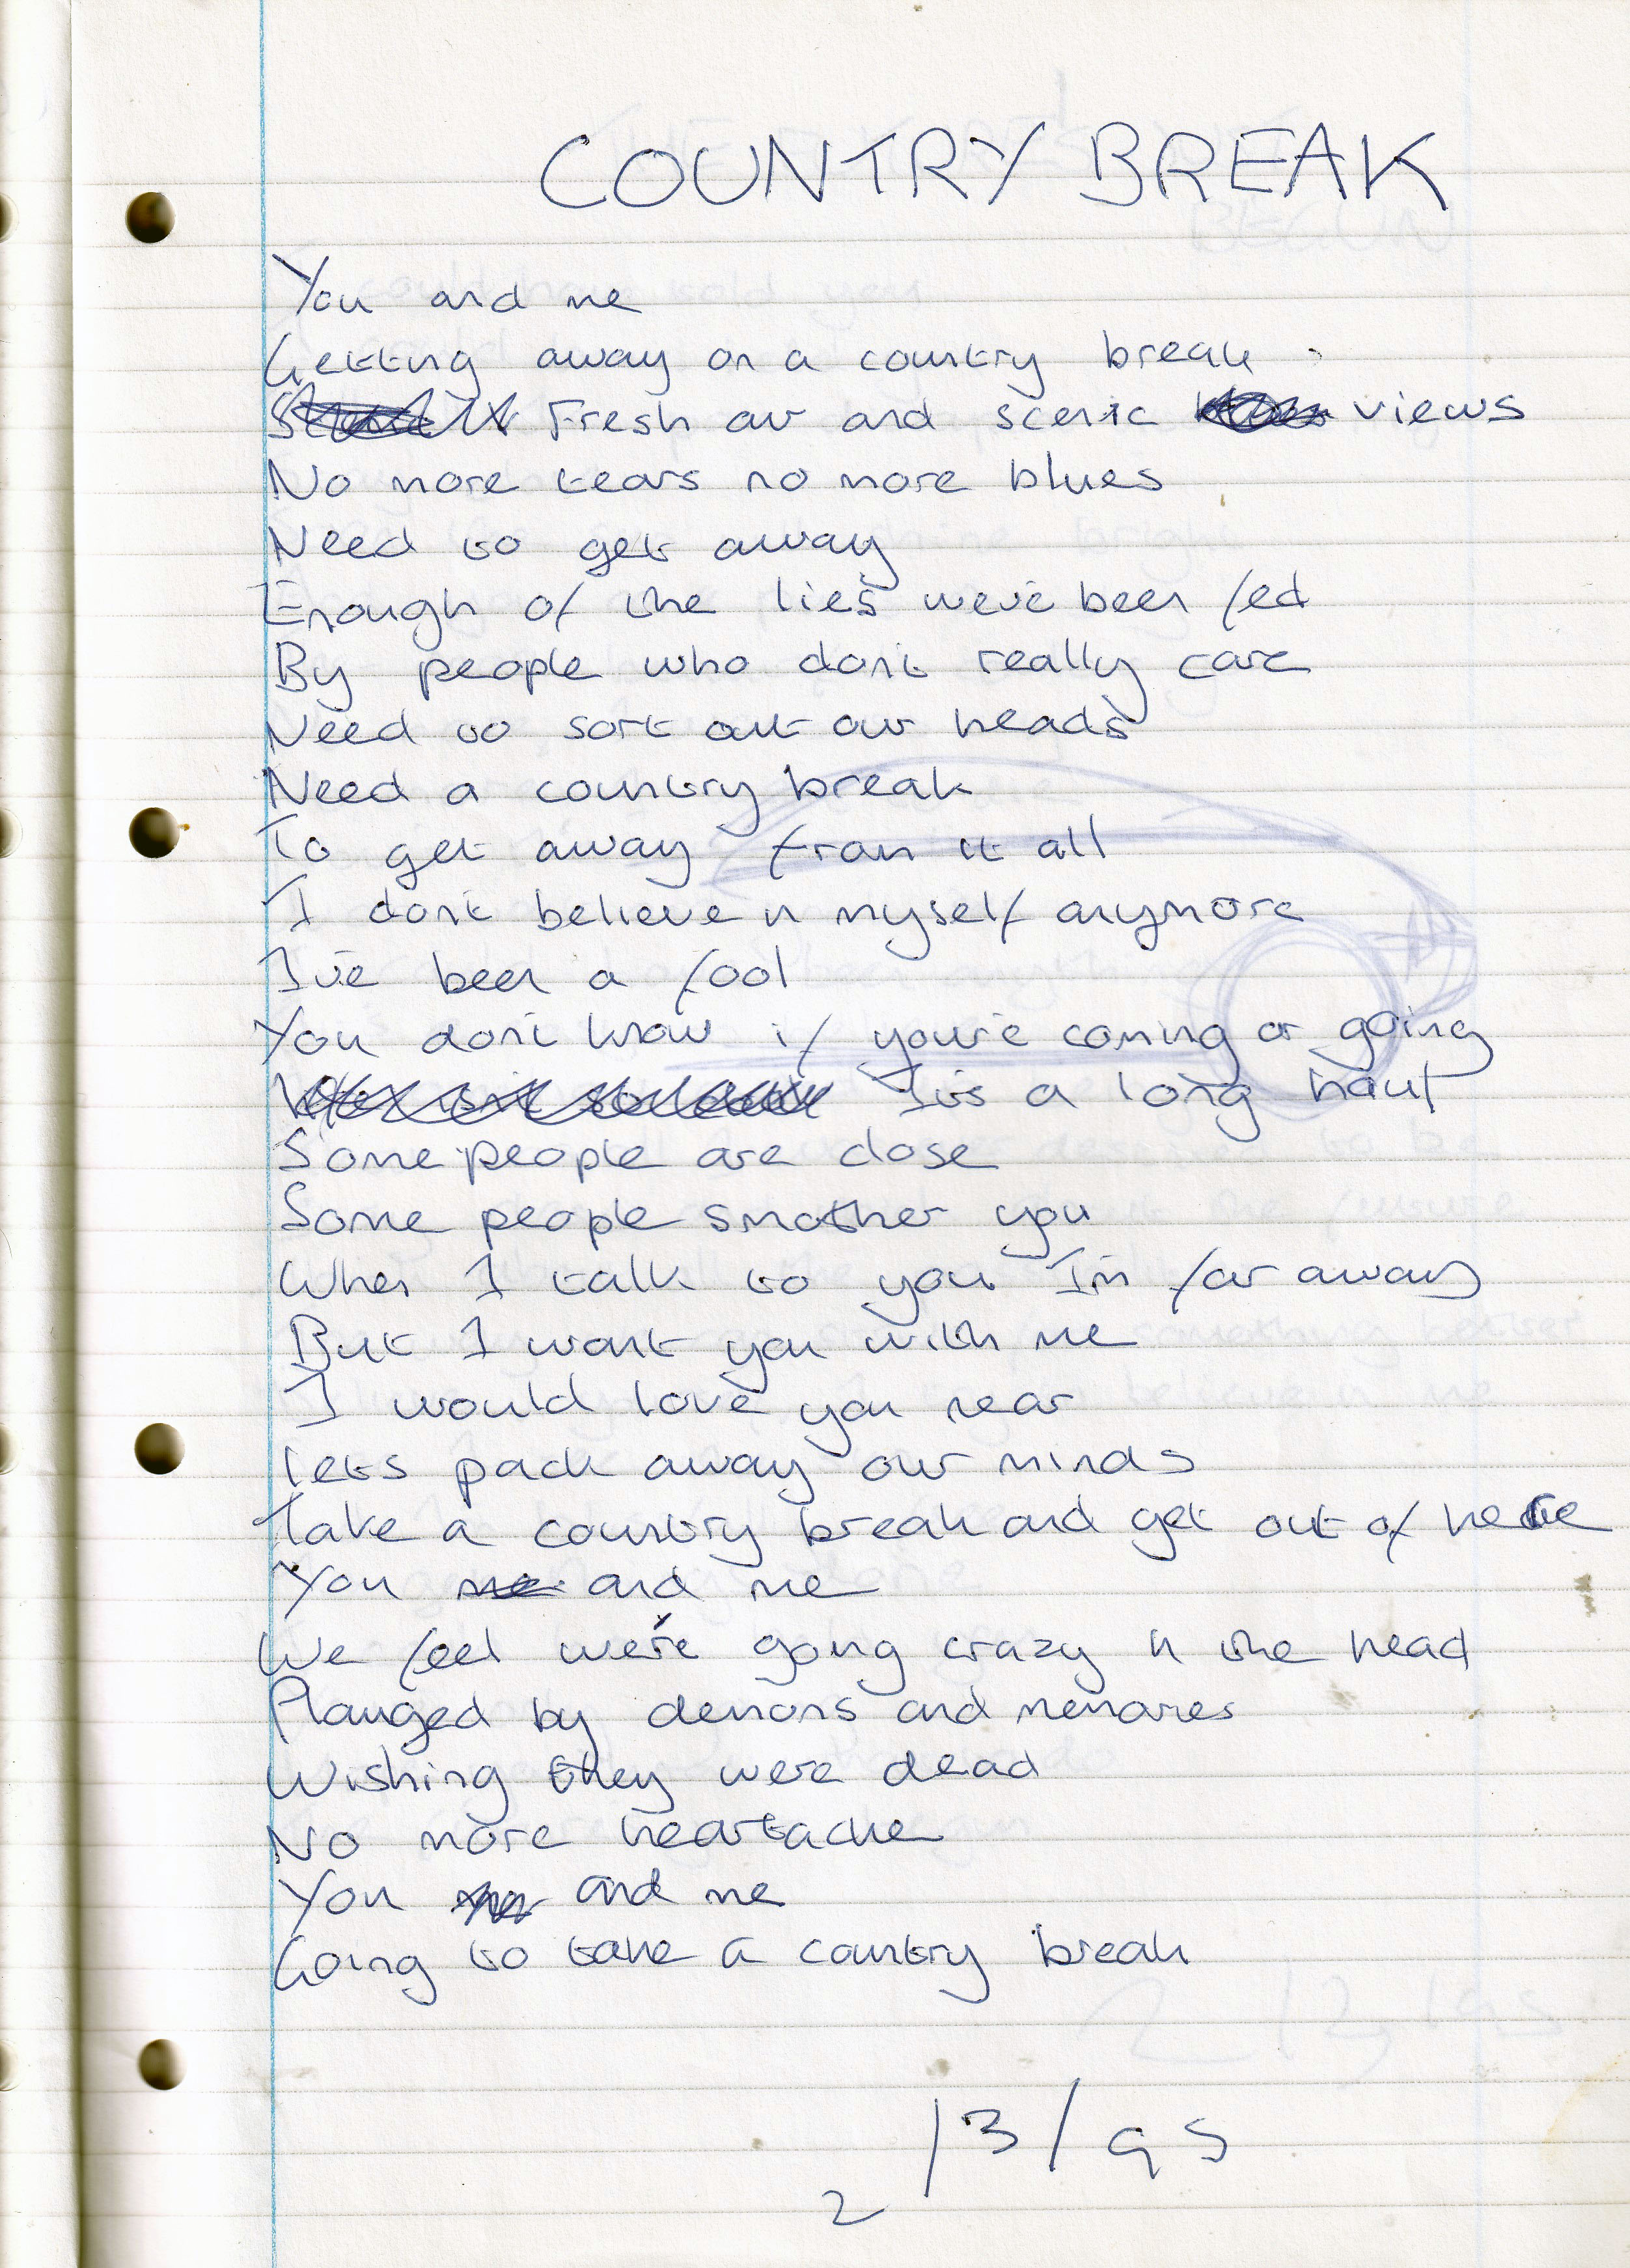 COUNTRY BREAK
You and me
Getting away on a country break
Fresh air and scenic views
No more tears no more blues
Need to get away
Enough of the lies we've been fed
By people who don't really care
Need to sort out our heads
Need a country break
To get away from it all
I don't believe in myself anymore
I've been a fool
You don't know if you're coming or going
It's a long haul
Some people are close
Some people smother you
When I talk to you I'm far away
But I want you with me
I would love you near
lets pack away our minds
Take a country break and get out of here
You me and me
We feel we're going crazy in the head
Plauged by demons and memories
Wishing they were dead
No more heartache
You and me
Going to take a country break
2/3/95